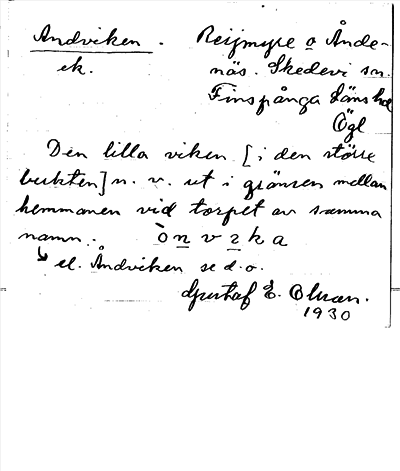 Andviken. Reijmyre o Ånde-
ek. näs. Skedevi sn.
Finspånga Läns hd
Ögl
Den lilla viken [i den större
bukten] n. v. ut i gränsen mellan
hemmanen vid torpet av samma
namn.
el. Åndviken se d. o.
Gustaf E. Olsson.
1930